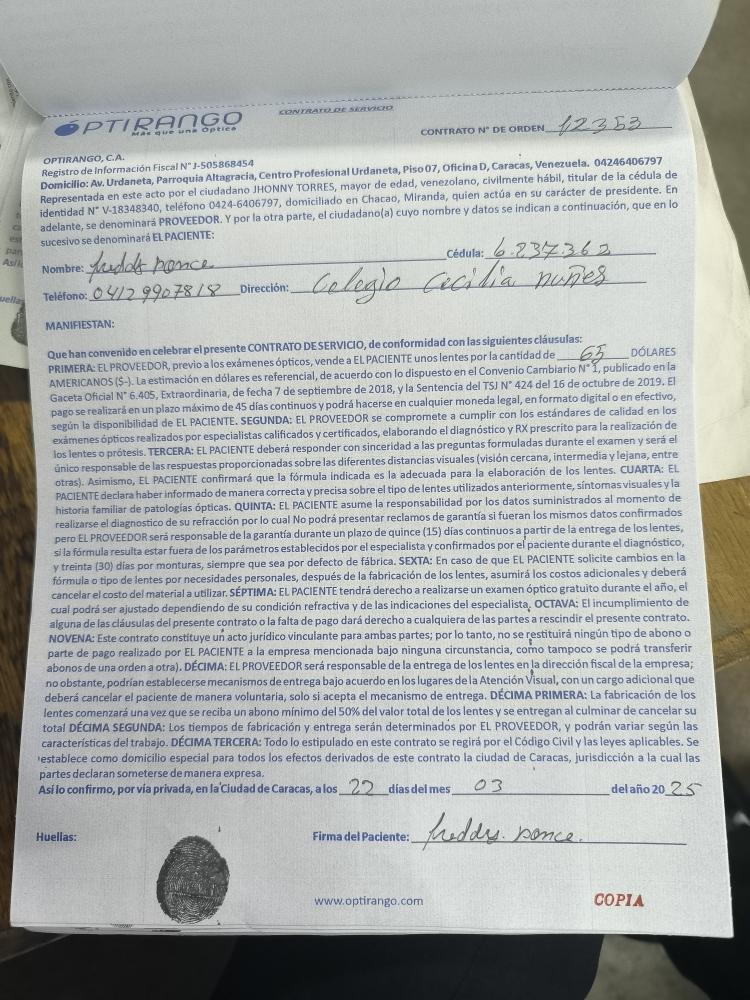 OPTIRANGO
Más que una Óptica
CONTRATO DE SERVICIO
CONTRATO N° DE ORDEN 12353
OPTIRANGO, C.A.
Registro de Información Fiscal N° J-505868454
Domicilio: Av. Urdaneta, Parroquia Altagracia, Centro Profesional Urdaneta, Piso 07, Oficina D, Caracas, Venezuela. 04246406797
Representada en este acto por el ciudadano JHONNY TORRES, mayor de edad, venezolano, civilmente hábil, titular de la cédula de
identidad N° V-18348340, teléfono 0424-6406797, domiciliado en Chacao, Miranda, quien actúa en su carácter de presidente. En
adelante, se denominará PROVEEDOR. Y por la otra parte, el ciudadano(a) cuyo nombre y datos se indican a continuación, que en lo
sucesivo se denominará EL PACIENTE:
Nombre: freddys ponce Cédula: 6.237.362
Teléfono: 0412 9907818 Dirección: Colegio Cecilia nuñes
MANIFIESTAN:
Que han convenido en celebrar el presente CONTRATO DE SERVICIO, de conformidad con las siguientes cláusulas:
PRIMERA: EL PROVEEDOR, previo a los exámenes ópticos, vende a EL PACIENTE unos lentes por la cantidad de 65 DÓLARES
AMERICANOS ($-). La estimación en dólares es referencial, de acuerdo con lo dispuesto en el Convenio Cambiario N° 1, publicado en la
Gaceta Oficial N° 6.405, Extraordinaria, de fecha 7 de septiembre de 2018, y la Sentencia del TSJ N° 424 del 16 de octubre de 2019. El
pago se realizará en un plazo máximo de 45 días continuos y podrá hacerse en cualquier moneda legal, en formato digital o en efectivo,
según la disponibilidad de EL PACIENTE. SEGUNDA: EL PROVEEDOR se compromete a cumplir con los estándares de calidad en los
exámenes ópticos realizados por especialistas calificados y certificados, elaborando el diagnóstico y RX prescrito para la realización de
los lentes o prótesis. TERCERA: EL PACIENTE deberá responder con sinceridad a las preguntas formuladas durante el examen y será el
único responsable de las respuestas proporcionadas sobre las diferentes distancias visuales (visión cercana, intermedia y lejana, entre
otras). Asimismo, EL PACIENTE confirmará que la fórmula indicada es la adecuada para la elaboración de los lentes. CUARTA: EL
PACIENTE declara haber informado de manera correcta y precisa sobre el tipo de lentes utilizados anteriormente, síntomas visuales y la
historia familiar de patologías ópticas. QUINTA: EL PACIENTE asume la responsabilidad por los datos suministrados al momento de
realizarse el diagnostico de su refracción por lo cual No podrá presentar reclamos de garantía si fueran los mismos datos confirmados
pero EL PROVEEDOR será responsable de la garantía durante un plazo de quince (15) días continuos a partir de la entrega de los lentes,
si la fórmula resulta estar fuera de los parámetros establecidos por el especialista y confirmados por el paciente durante el diagnóstico,
y treinta (30) días por monturas, siempre que sea por defecto de fábrica. SEXTA: En caso de que EL PACIENTE solicite cambios en la
fórmula o tipo de lentes por necesidades personales, después de la fabricación de los lentes, asumirá los costos adicionales y deberá
cancelar el costo del material a utilizar. SÉPTIMA: EL PACIENTE tendrá derecho a realizarse un exámen óptico gratuito durante el año, el
cual podrá ser ajustado dependiendo de su condición refractiva y de las indicaciones del especialista. OCTAVA: El incumplimiento de
alguna de las cláusulas del presente contrato o la falta de pago dará derecho a cualquiera de las partes a rescindir el presente contrato.
NOVENA: Este contrato constituye un acto jurídico vinculante para ambas partes; por lo tanto, no se restituirá ningún tipo de abono o
parte de pago realizado por EL PACIENTE a la empresa mencionada bajo ninguna circunstancia, como tampoco se podrá transferir
abonos de una orden a otra). DÉCIMA: EL PROVEEDOR será responsable de la entrega de los lentes en la dirección fiscal de la empresa;
no obstante, podrían establecerse mecanismos de entrega bajo acuerdo en los lugares de la Atención Visual, con un cargo adicional que
deberá cancelar el paciente de manera voluntaria, solo si acepta el mecanismo de entrega. DÉCIMA PRIMERA: La fabricación de los
lentes comenzará una vez que se reciba un abono mínimo del 50% del valor total de los lentes y se entregan al culminar de cancelar su
total DÉCIMA SEGUNDA: Los tiempos de fabricación y entrega serán determinados por EL PROVEEDOR, y podrán variar según las
características del trabajo. DÉCIMA TERCERA: Todo lo estipulado en este contrato se regirá por el Código Civil y las leyes aplicables. Se
establece como domicilio especial para todos los efectos derivados de este contrato la ciudad de Caracas, jurisdicción a la cual las
partes declaran someterse de manera expresa.
Así lo confirmo, por vía privada, en la Ciudad de Caracas, a los 22 días del mes 03 del año 20 25
Huellas:
Firma del Paciente: freddys. ponce.
www.optirango.com
COPIA